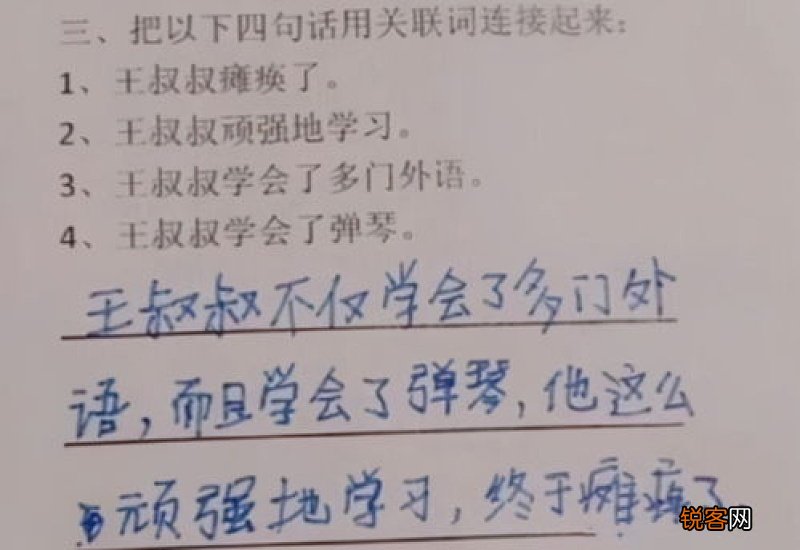 三、把以下四句话用关联词连接起来:
1、王叔叔瘫痪了。
2、王叔叔顽强地学习。
3、王叔叔学会了多门外语。
4、王叔叔学会了弹琴。
王叔叔不仅学会了多门外
语,而且学会了弹琴,他这么
顽强地学习,终于瘫痪了
锐客网